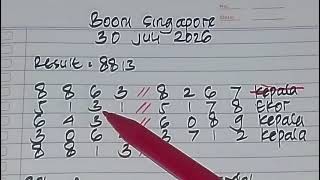 Boom Singapore
30 Juli 2026
Result = 8813
8 8 6 3 // 8 2 6 7 Kepala
5 1 3 // 5 1 7 8 Ekor
6 4 3 // 6 0 8 9 Kepala
3 0 6 3 7 1 2 Kepala
8 8 1 3